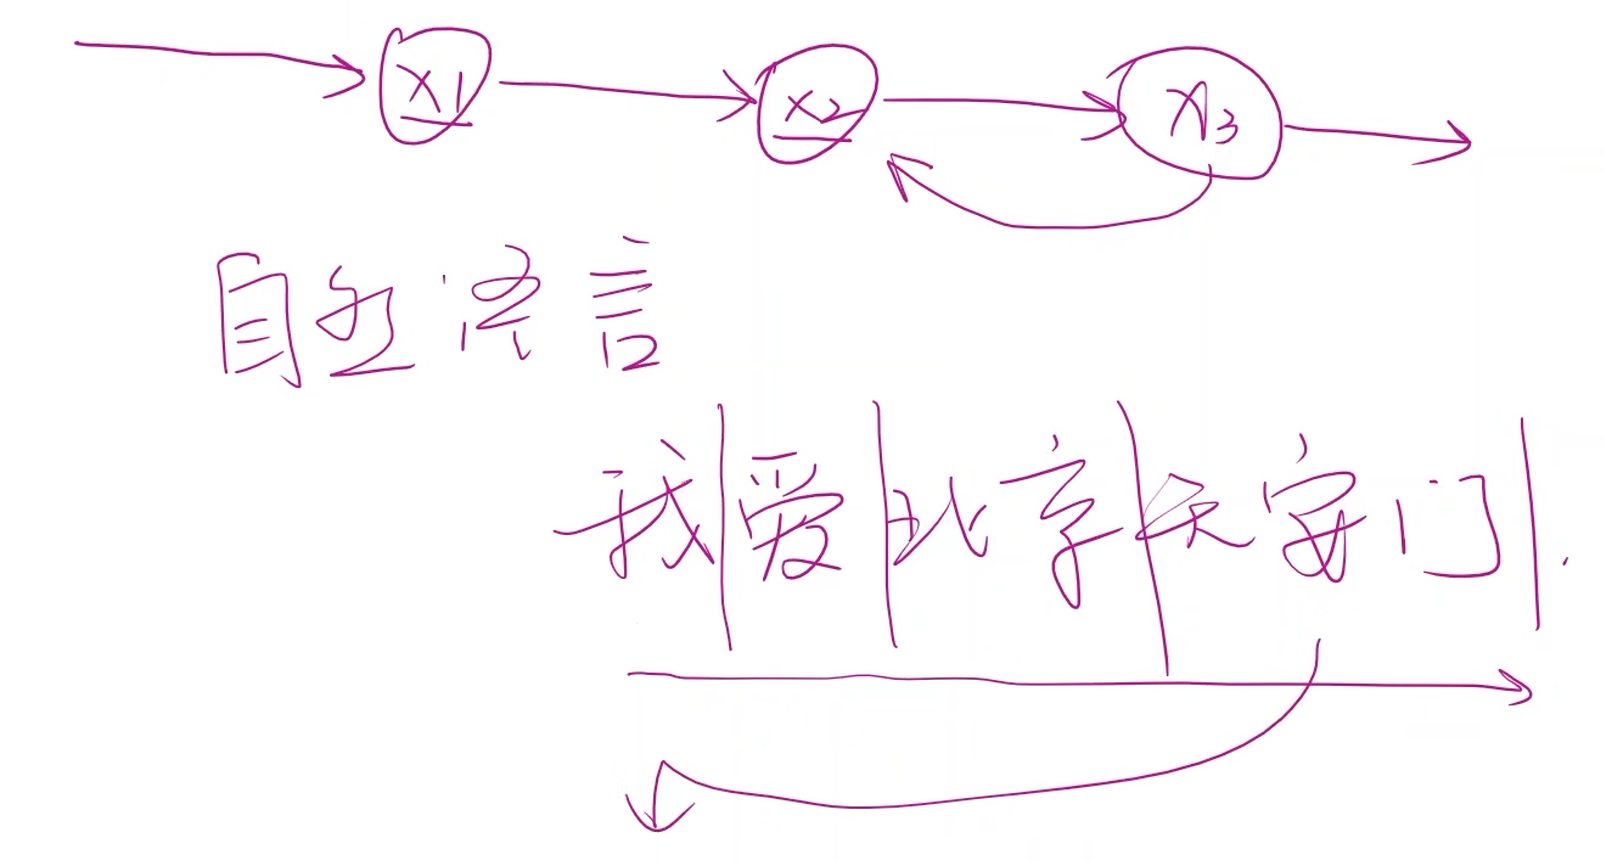 x1 x2 x3
自然语言
我|爱|北京|天安门|.